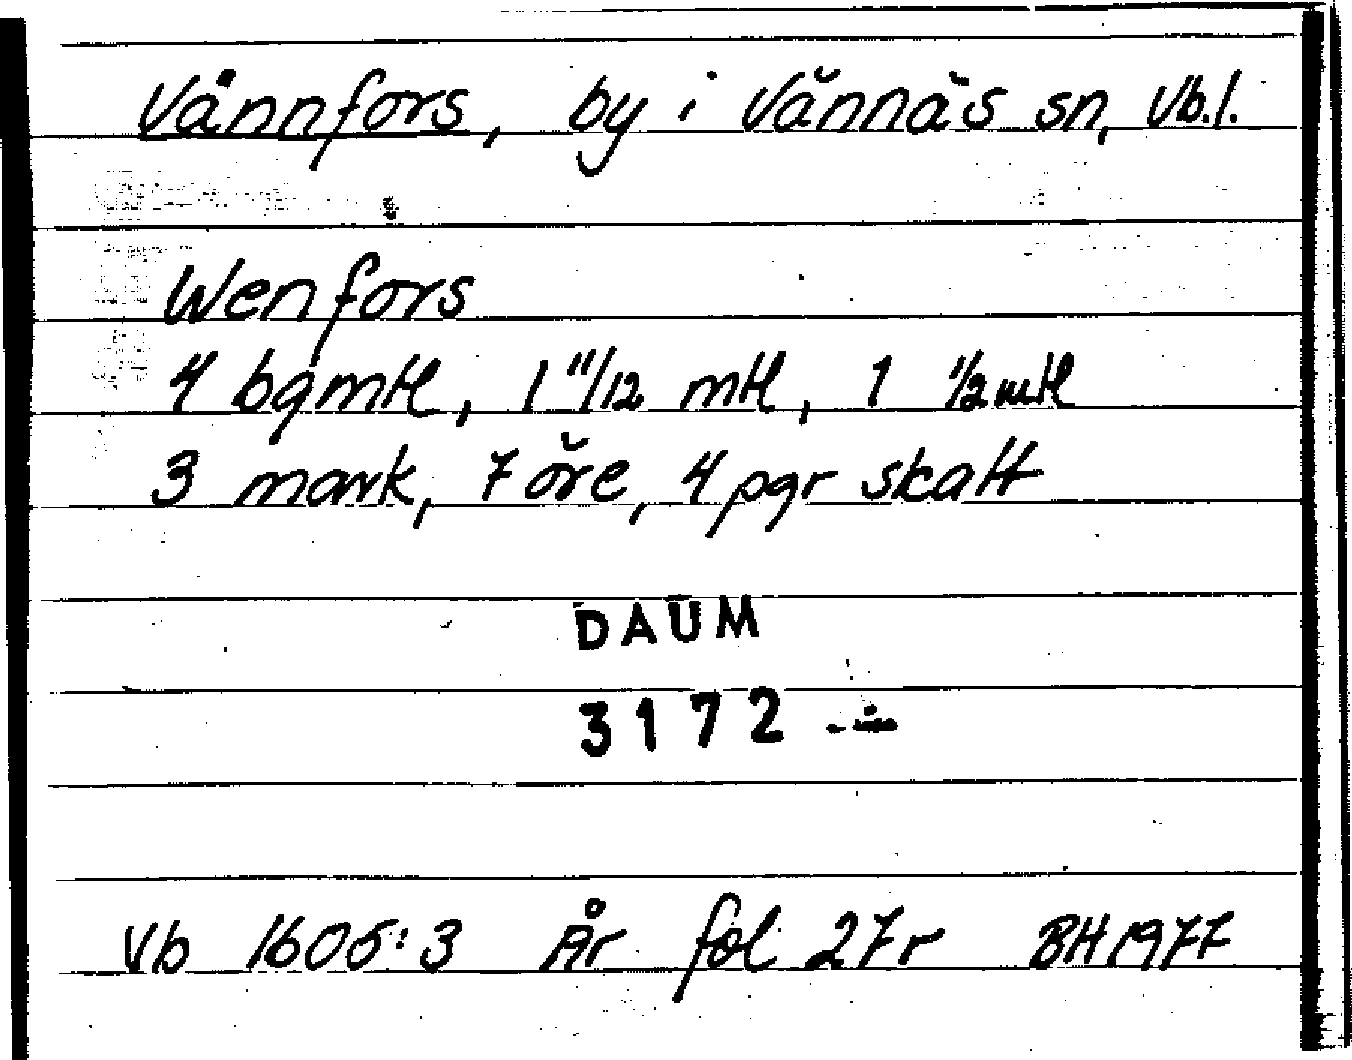 Vännfors, by i Vännäs sn, Vb.l.
Wenfors
4 bgmtl, 1 11/12 mtl, 1 1/2 mtl
3 mark, 7 öre, 4 pgr skatt
DAUM
3172
Vb 1605:3 År fol 27r BH 1977